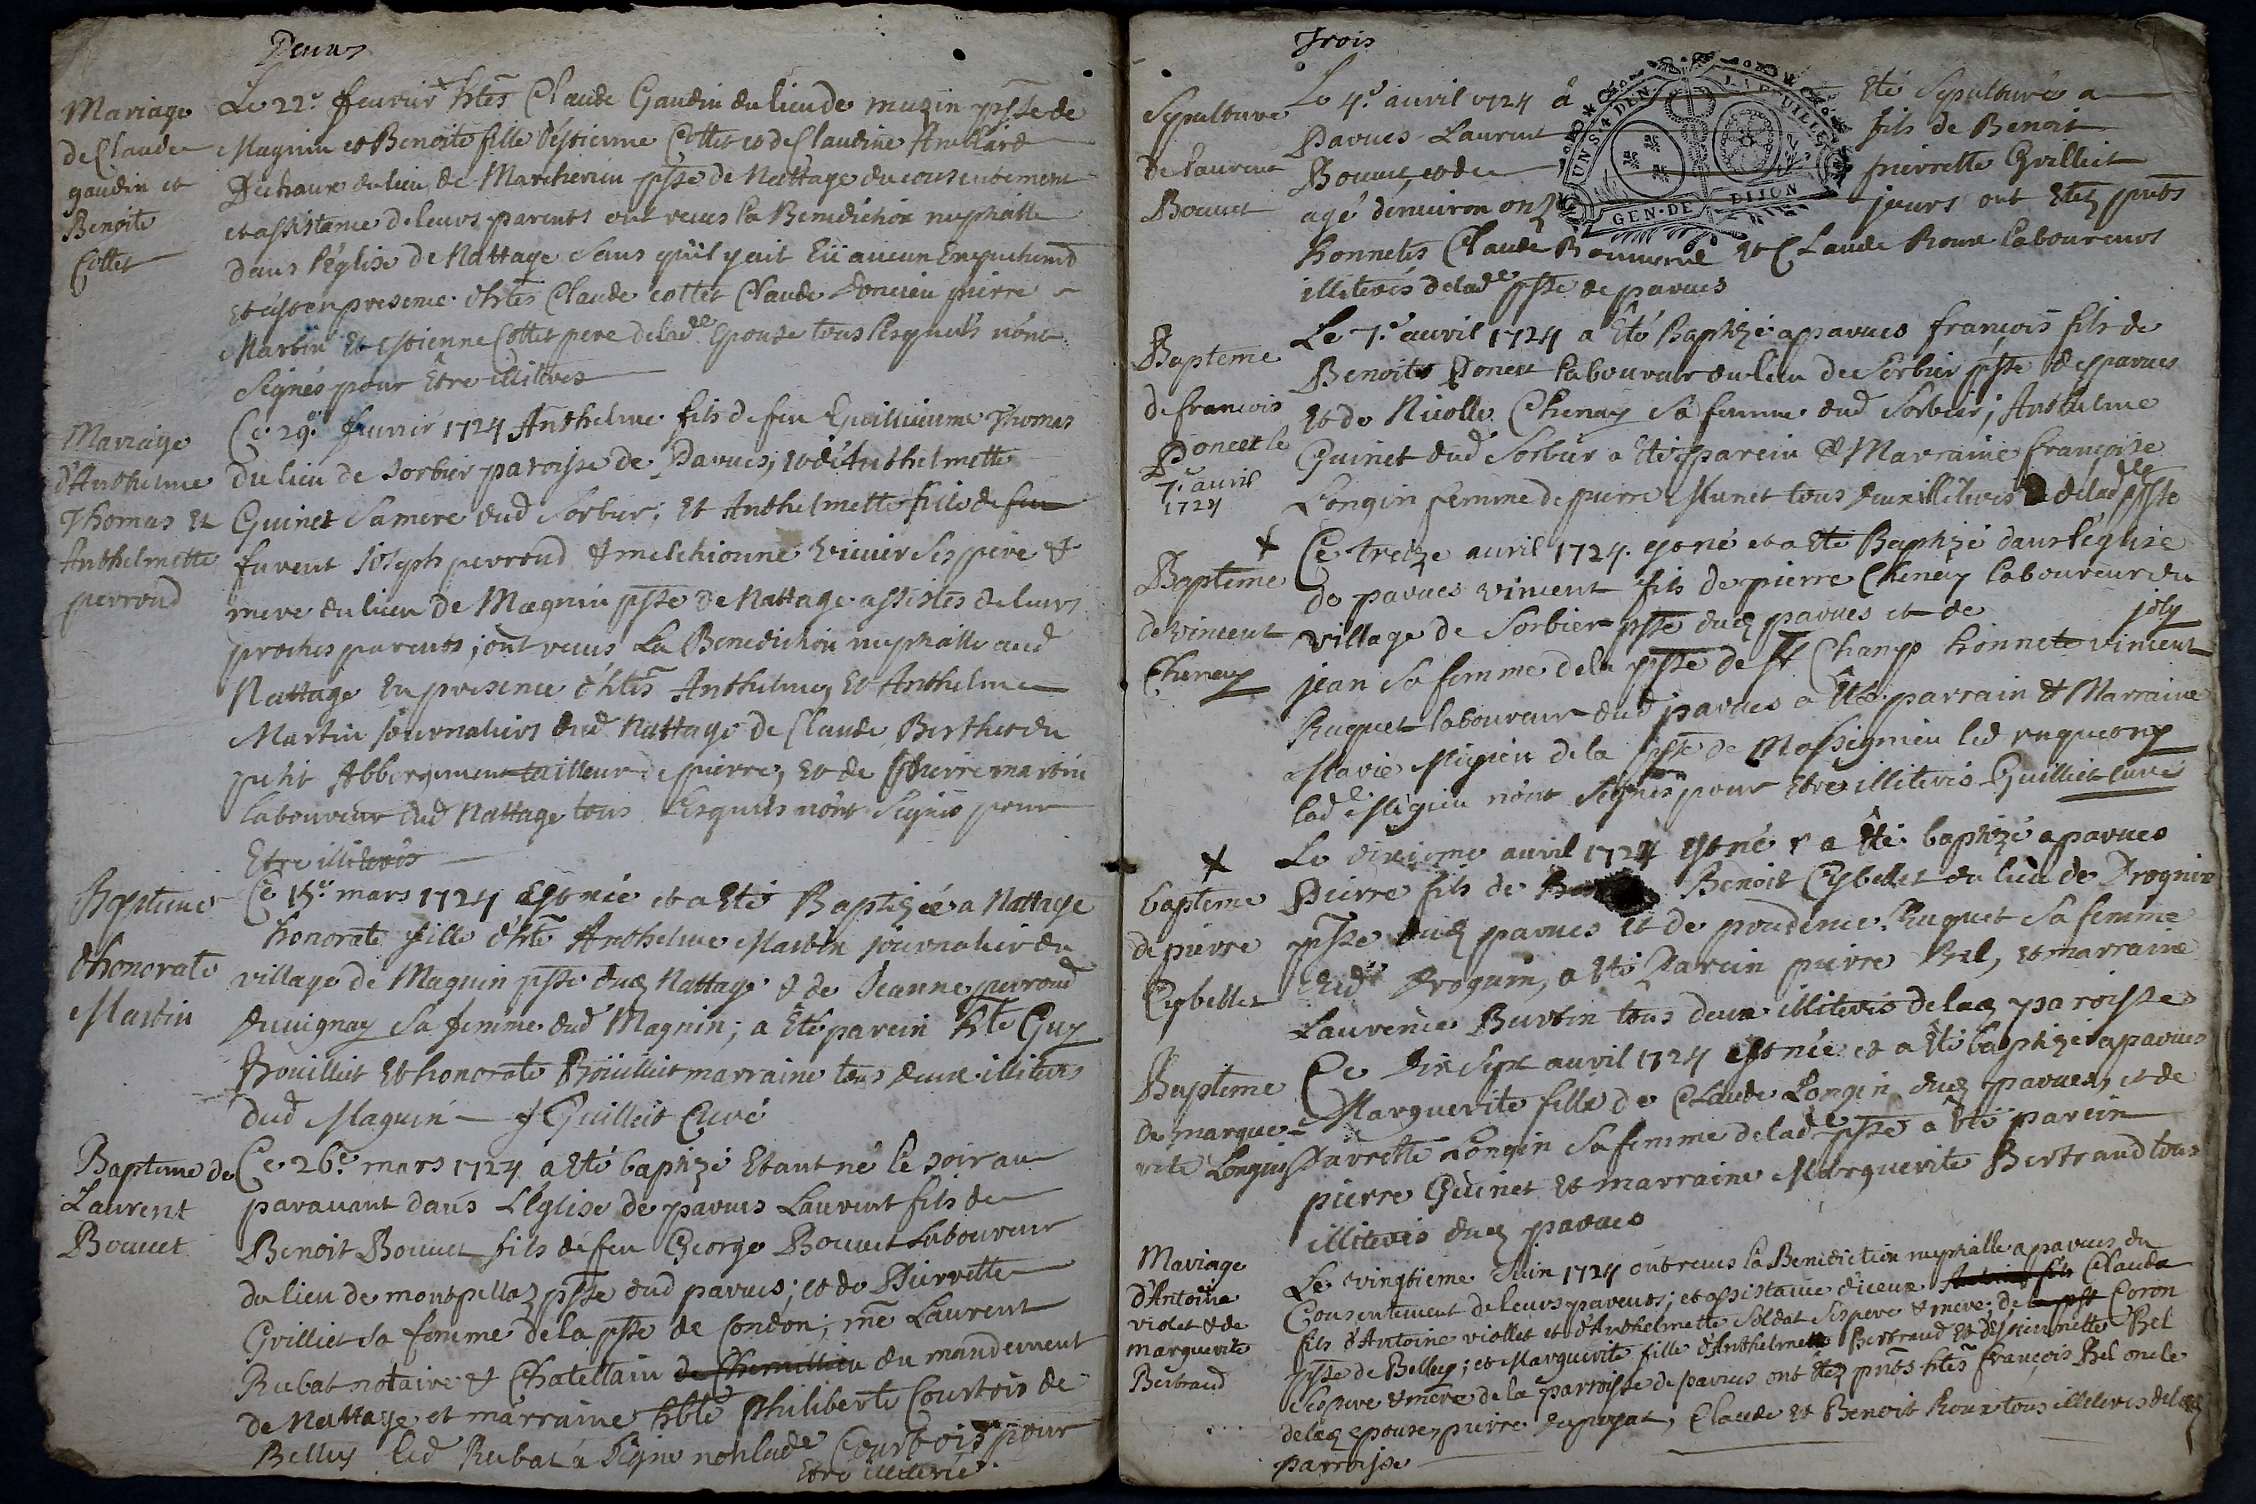 Deux
Mariage
de Claude
gaudin et
Benoite
Collet
Le 22e feuvrier htes Claude Gaudin du lieu de muzin psse de
Magnin et Benoite fille d'estienne Collet et de Claudine
du lieu de Marcherieu psse de Nattage du consentement
et assistance de leurs parents ont receus la Benediction nuptialle
dans l'église de Nattage sans qu'il y ait Eü aucun Empechemt
et c'est en presence d'htes Claude collet Claude Doncieu pierre
Martin Et estienne Collet pere de lade Epouse tous lesquels n'ont
signés pour Etre illiteres
Mariage
d'Anthelme
Thomas et
Anthelmette
perroud
Ce 29e feuvrier 1724 Anthelme fils de feu Guillieaume Thomas
du lieu de sorbier paroisse de Parves; et d'Anthelmette
Guinet sa mere dud Sorbier; et Anthelmette fille de feu
furent Joseph perroud & melchionne viuier ses pere &
mere du lieu de Magnin psse de Nattage assistés de leurs
proches parents; ont receus La Benediction nuptialle aud
Nattage En presence d'htes Anthelme, Et Anthelme
Martin journaliers dud Nattage de Claude Berthet du
petit Abbergement tailleur de pierre, Et de pierre martin
laboureur dud Nattage tous Lesquels n'ont signés pour
Etre illiterés
Bapteme
d'honorate
Martin
Ce 15e mars 1724 Est née et a Eté Baptizée a Nattage
honorate fille d'hte Anthelme Martin journalier du
village de Magnin psse dud Nattage & de Jeanne perroud
duvignay sa femme dud Magnin; a Eté parein hte Guy
Broüilliet Et honorate Broüilliet marraine tous deux illiteres
dud Magnin Guilliet Curé
Bapteme de
Laurent
Bouuet
Ce 26e mars 1724 a Eté baptizé Etant né le soir au
paravant dans L'Eglise de parves Laurent fils de
Benoit Bouuet fils de feu George Bouuet Laboureur
du lieu de montpellaz psse dud parves; et de Pierrette
Grilliet sa femme de la psse de Condon; me Laurent
Rubat notaire & Chatellain de Chemillieu du mandement
de Nattage et marraine hble Philiberte Courtois de
Belley led Rubat a signé non lade Courtois pour
Etre illiterée.
Trois
Sepulture
de laurent
Bouuet
Le 4e auril 1724 à Eté Sepulturé a
Parves Laurent fils de Benoit
Bouuet, et de pierrette Grilliet
agé d'enuiron onze jours ont Etez pnts
honnetes Claude Et Claude Roux laboureurs
illiterés de lade psse de parves
UN S. 4 DEN.
GEN. DE DIJON
Bapteme
de francois
Poncet le
7e auril
1724
Le 7e auril 1724 a Eté Baptizé a parves françois fils de
Benoit Poncet laboureur du lieu de Sorbier psse de parves
Et de Nicolle Cheney sa femme dud Sorbier; Anthelme
Guinet dud Sorbier a Eté parein & Marraine françoise
Longin femme de pierre Munet tous deux illiterés de lade psse
Bapteme
de vincent
Cheney
Ce treize auril 1724 est né et a Eté Baptizé dans l'église
de parves vincent fils de pierre Cheney laboureur du
village de Sorbier psse dud parves et de joly
jean sa femme de la psse de St Champ honnete vincent
Ruquet laboureur dud parves a Eté parrain & Marraine
Marie Migieu de la psse de Massignieu led ruquet ny
lad Migieu n'ont signés pour Etre illiterés Guilliet curé
bapteme
de pierre
Cysbellet
Le auril 1724 est né & a Eté baptizé a parves
Pierre fils de Benoit Cysbellet du lieu de Drognin
psse dud parves Et de prudence Ruquet sa femme
dud Drognin, a Eté Parein pierre Bel, et marraine
Laurence Burtin tous deux illiterés de lad paroisse
Bapteme
de margue-
rite Longin
Ce dix sept auril 1724 est née et a Eté baptizée a parves
Marguerite fille de Claude Longin dud parves, et de
Pierrette Longin sa femme de lade psse a Eté parein
pierre Guinet et marraine Marguerite Bertrand tous
illiterés dud parves
Mariage
d'Antoine
violet & de
marguerite
Bertrand
Le vingtieme Juin 1724 ont receus la Benediction nuptialle a parves du
Consentement de leurs parents; et assistance d'iceux Antoine fils Claude
fils d'Antoine viollet et d'Anthelmette Soldat ses pere & mere; de la psse Coron
psse de Belley; et Marguerite fille d'Anthelme Bertrand Et d'estiennette Bel
ses pere & mere de la parroisse de parves ont Etez pnts htes françois Bel oncle
de lad epouse, pierre, Claude Et Benoit Roux tous illiterés de lad
parroisse